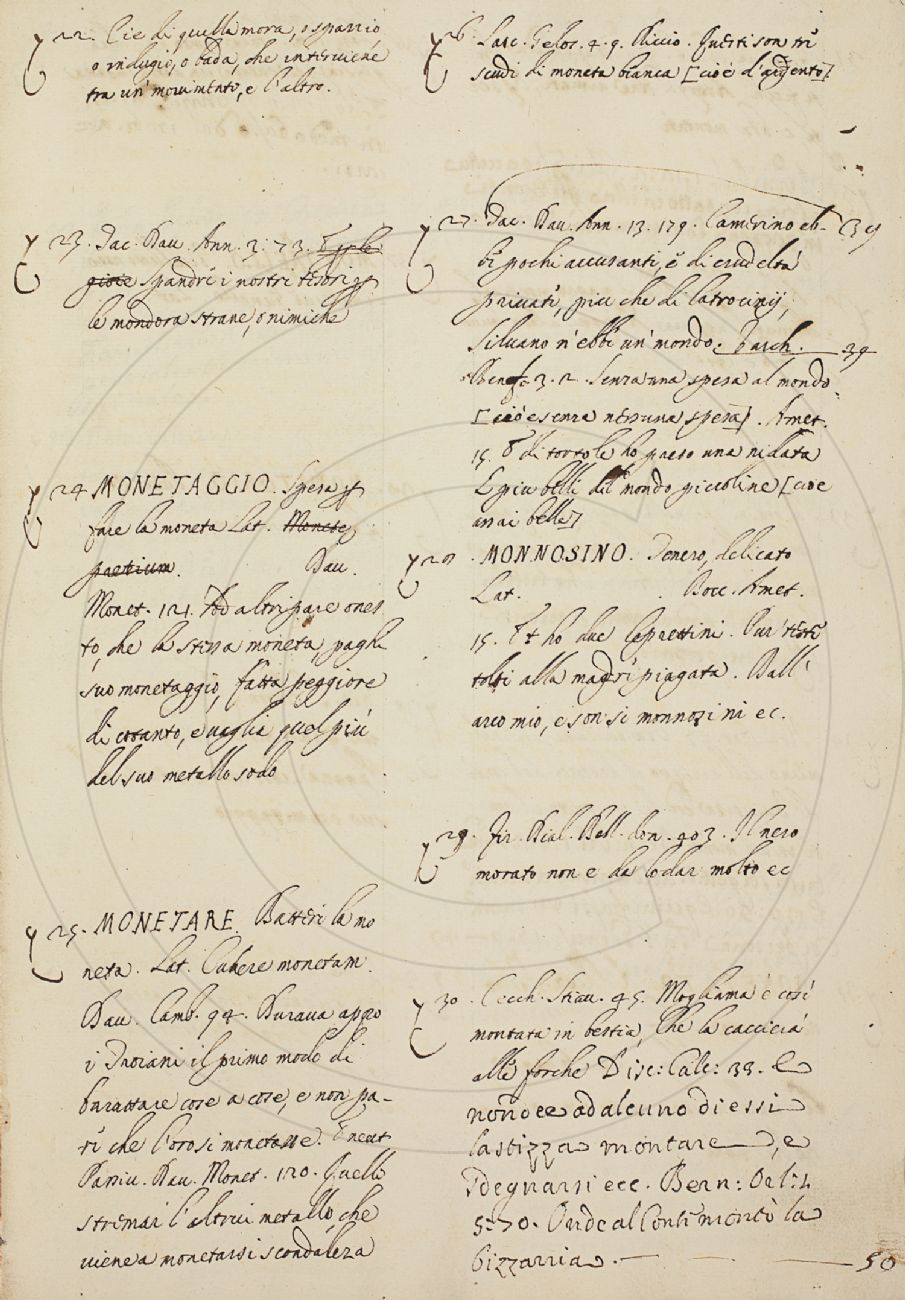 22. Cie di quella mora, o spazzio
o indugio, o bada, che interviene
tra un' movimento, e l'altro.
23. Tac. Dav. Ann. 3. 73.
gioie spandre i nostri tesori
le mondora strane, o nimiche
24 MONETAGGIO. Spesa
fare la moneta Lat. Monete
pretium. Dav.
Monet. 121. Ad altri pare ones
to, che la stessa moneta, paghi
suo monetaggio, fatta peggiore
di cotanto, e vaglia quel più
del suo metallo sodo
25. MONETARE. Battere la mo
neta. Lat. Cudere monetam.
Dav. Camb. 94. Durava appo
i Troiani il primo modo di
barattare cose a cose, e non pa-
re che l'oro si monetasse.
Dav. Monet. 120. Quelli
stremar l'altrui metallo, che
viene a monetarsi scandaleza
26. Lasc. Gelos. 4. 9. Questi son tre
scudi di moneta bianca [cioè d'argento]
27. Tac. Dav. Ann. 13. 179. Camerino eb- 39
be pochi accusanti, e di crudeltà
privati, più che di latrocinij,
Silvano n' ebbe un' mondo. Varch. 39
Benef. 3. 2. Senza una spesa al mondo
[cioè senza nessuna spesa]. Amet.
15. E di tortole ho preso una nidata
Le piu belle del mondo piccoline [cioe
assai belle]
28. MONNOSINO. Tenero, delicato
Lat. Bocc. Amet.
15. Et ho due leprettini. Pur teste
tolti alla madre piagata. Dall'
arco mio, e son si monnosini ec.
29. Fir. Dial. Bell. don. 403. Il nero
morato non e da lodar molto ec
30. Cecch. Stiav. 45. Mogliama è così
montata in bestia, che la caccieià
alle forche Disc: Calc: 33. E
non ad alcuno di essi
la stizza montare, e
sdegnarsi ecc. Bern: Orl: 1.
5. 70. Onde al Conte montò la
bizzarria. 50